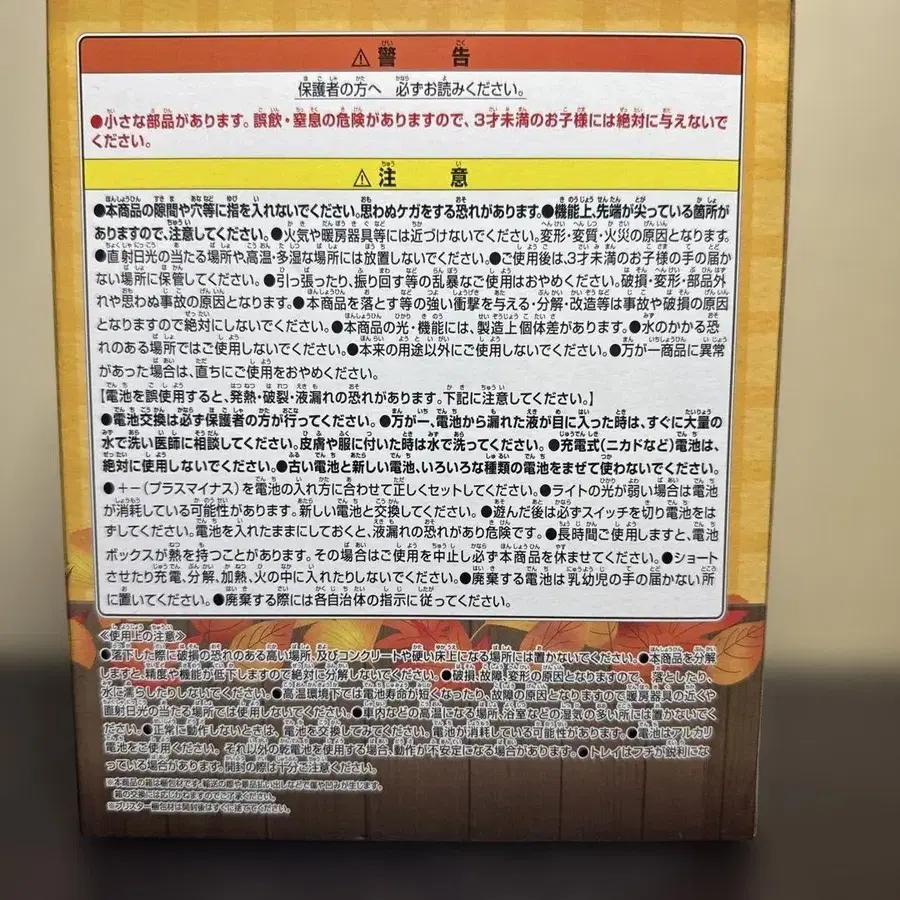 ⚠警告
保護者の方へ 必ずお読みください。
●小さな部品があります。誤飲・窒息の危険がありますので、3才未満のお子様には絶対に与えないで
ください。
⚠注意
●本商品の隙間や穴等に指を入れないでください。思わぬケガをする恐れがあります。●機能上、先端が尖っている箇所が
ありますので、注意してください。●火気や暖房器具等には近づけないでください。変形・変質・火災の原因となります。
●直射日光の当たる場所や高温・多湿な場所には放置しないでください。●ご使用後は、3才未満のお子様の手の届か
ない場所に保管してください。●引っ張ったり、振り回す等の乱暴なご使用はおやめください。破損・変形・部品外
れや思わぬ事故の原因となります。●本商品を落とす等の強い衝撃を与える・分解・改造等は事故や破損の原因
となりますので絶対にしないでください。●本商品の光・機能には、製造上個体差があります。●水のかかる恐
れのある場所ではご使用しないでください。●本来の用途以外にご使用しないでください。●万が一商品に異常
があった場合は、直ちにご使用をおやめください。
【電池を誤使用すると、発熱・破裂・液漏れの恐れがあります。下記に注意してください。】
●電池交換は必ず保護者の方が行ってください。●万が一、電池から漏れた液が目に入った時は、すぐに大量の
水で洗い医師に相談してください。皮膚や服に付いた時は水で洗ってください。●充電式(ニカドなど)電池は、
絶対に使用しないでください。●古い電池と新しい電池、いろいろな種類の電池をまぜて使わないでください。
●+−(プラスマイナス)を電池の入れ方に合わせて正しくセットしてください。●ライトの光が弱い場合は電池
が消耗している可能性があります。新しい電池と交換してください。●遊んだ後は必ずスイッチを切り電池をは
ずしてください。電池を入れたままにしておくと、液漏れの恐れがあり危険です。●長時間ご使用しますと、電池
ボックスが熱を持つことがあります。その場合はご使用を中止し必ず本商品を休ませてください。●ショート
させたり充電、分解、加熱、火の中に入れたりしないでください。●廃棄する電池は乳幼児の手の届かない所
に置いてください。●廃棄する際には各自治体の指示に従ってください。
≪使用上の注意≫
●落下した際に破損の恐れのある高い場所、及びコンクリートや硬い床上になる場所には置かないでください。●本商品を分解
しますと、精度や機能が低下しますので絶対に分解しないでください。●破損、故障、変形の原因となりますので、落としたり、
水に濡らしたりしないでください。●高温環境下では電池寿命が短くなったり、故障の原因となりますので暖房器具の近くや
直射日光の当たる場所では使用しないでください。●車内などの高温になる場所、浴室などの湿気の多い所には置かないでく
ださい。●正常に動作しないときは、電池を交換してみてください。電池が消耗している可能性があります。●電池はアルカリ
電池をご使用ください。それ以外の乾電池を使用する場合、動作が不安定になる場合があります。●トレイはフチが鋭利にな
っている場合があります。開封の際は十分ご注意ください。
※本商品の箱は梱包材です。輸送の際や景品払い出しなどで傷や凹みが生じます。
箱の交換には応じかねますのでご了承ください。
※ブリスター梱包材は開封後はすぐに捨ててください。